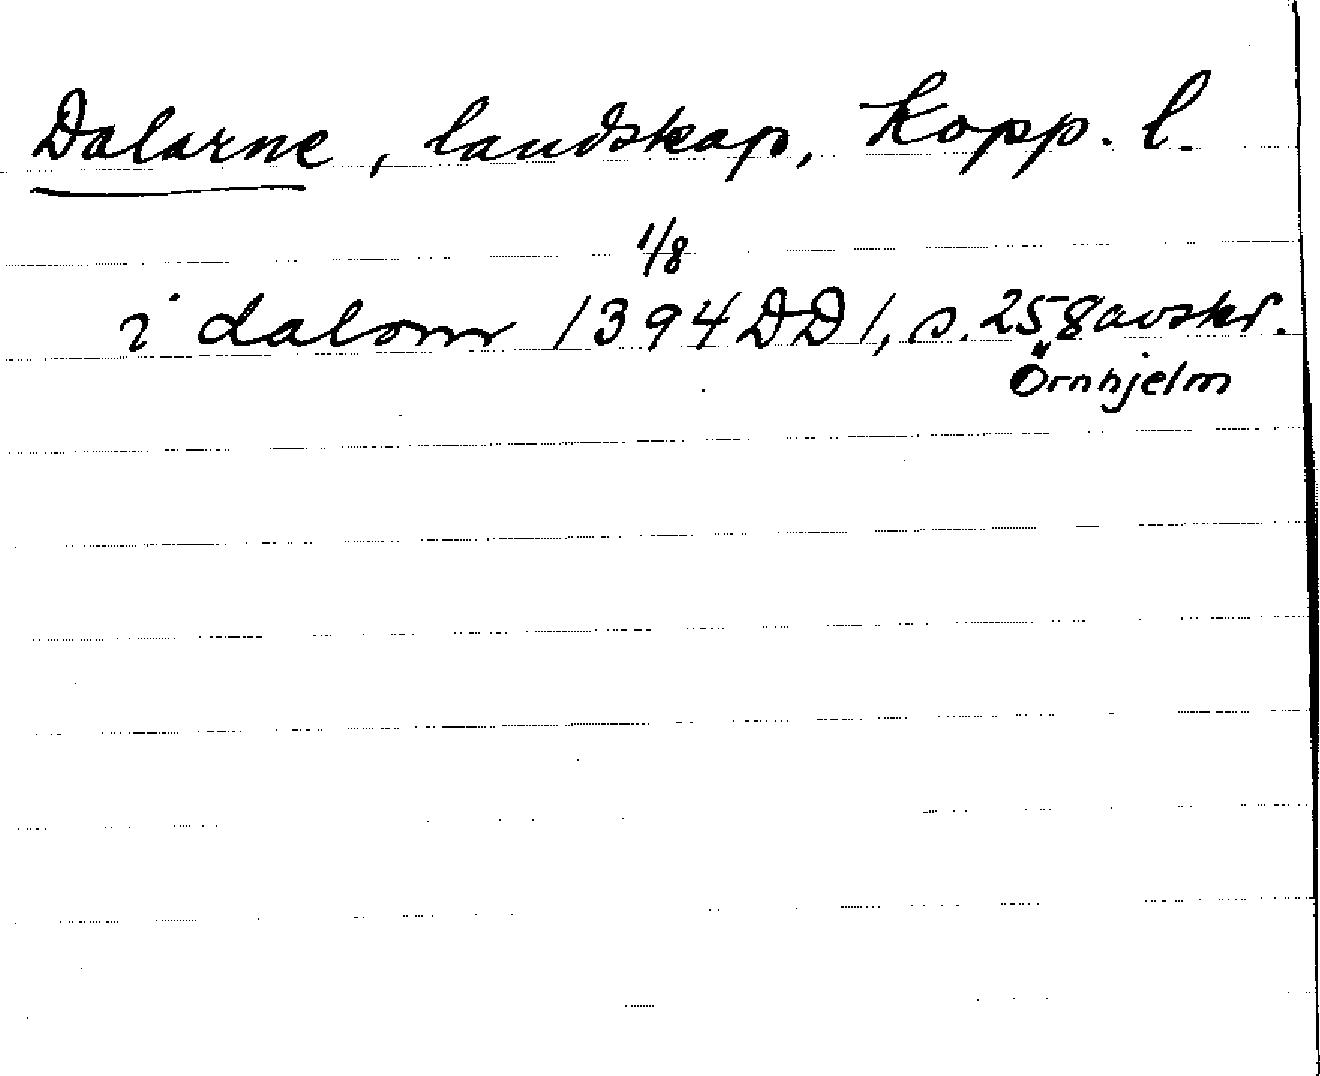 Dalarne, landskap, Kopp. l.
1/8
i dalom 1394 DD 1, s. 258 avskr.
Örnhjelm